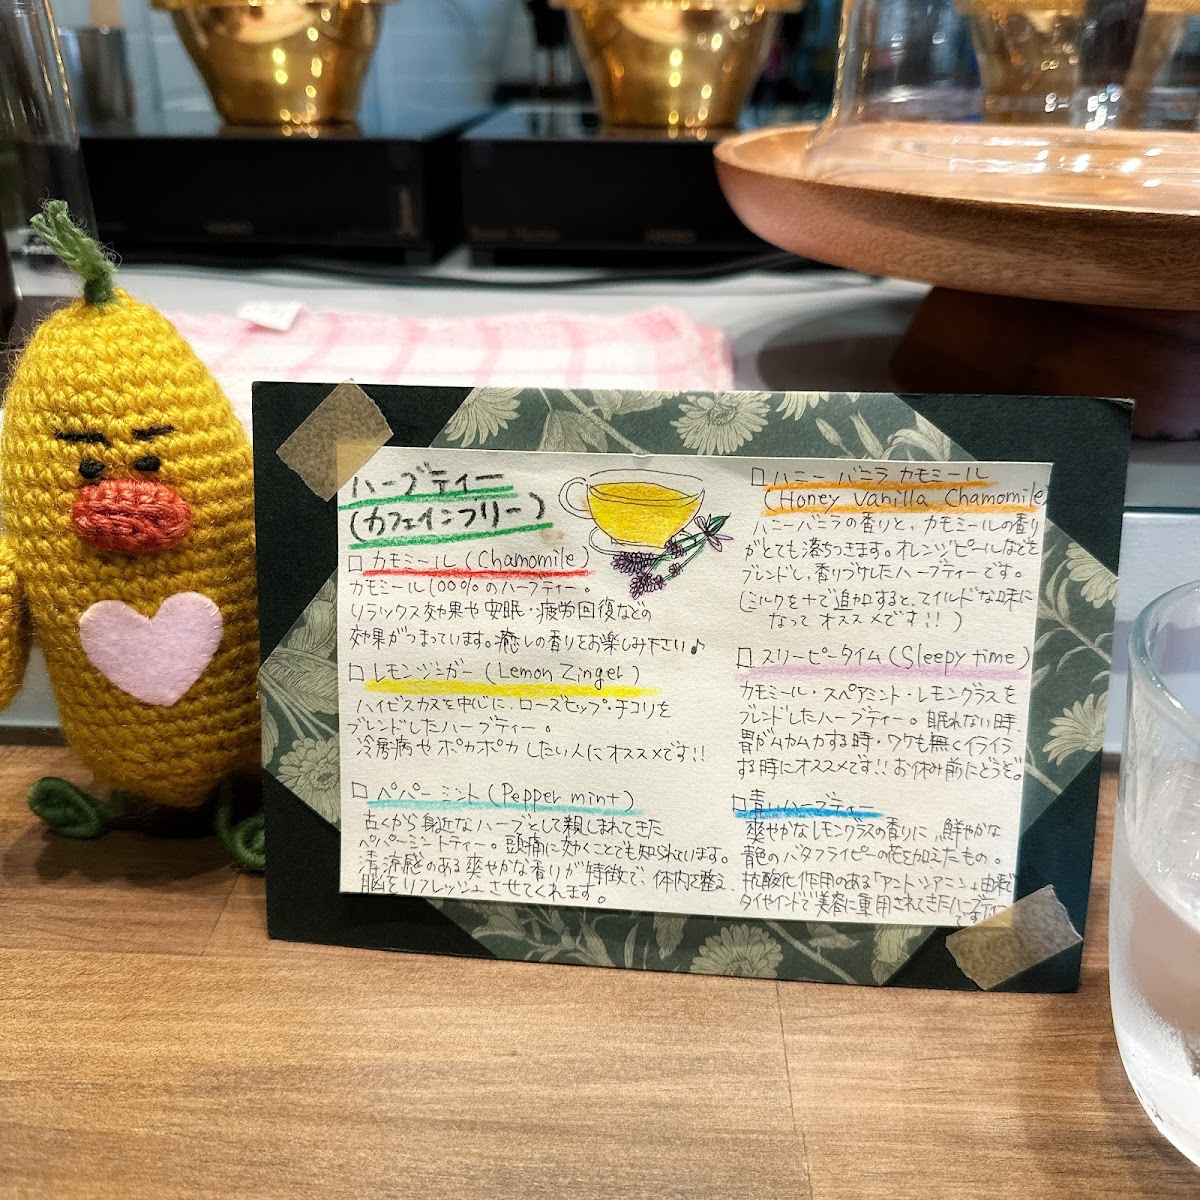 ハーブティー
(カフェインフリー)
□ カモミール (Chamomile)
カモミール100%のハーブティー。
リラックス効果や安眠・疲労回復などの
効果がつまっています。癒しの香りをお楽しみ下さい♪
□ レモンジンガー (Lemon Zinger)
ハイビスカスを中心に、ローズヒップ・チコリを
ブレンドしたハーブティー。
冷房病やポカポカしたい人にオススメです!!
□ ペパーミント (Peppermint)
古くから身近なハーブとして親しまれてきた
ペパーミントティー。頭痛に効くことでも知られています。
清涼感のある爽やかな香りが特徴で、体内を整え、
脳をリフレッシュさせてくれます。
□ ハニーバニラカモミール
(Honey Vanilla Chamomile
ハニーバニラの香りと、カモミールの香り
がとても落ちつきます。オレンジピールなどを
ブレンドと、香りづけしたハーブティーです。
(ミルクを+で追加すると、マイルドな味に
なってオススメです!!)
□ スリーピータイム (Sleepy time)
カモミール・スペアミント・レモングラスを
ブレンドしたハーブティー。眠れない時、
胃がムカムカする時・ワケも無くイライラ
する時にオススメです!!お休み前にどうぞ。
□ 青いハーブティー
爽やかなレモングラスの香りに、鮮やかな
青色のバタフライピーの花を加えたもの。
抗酸化作用のある「アントシアニン」由来
タイやインドで美容に重用されてきたハーブティー
です